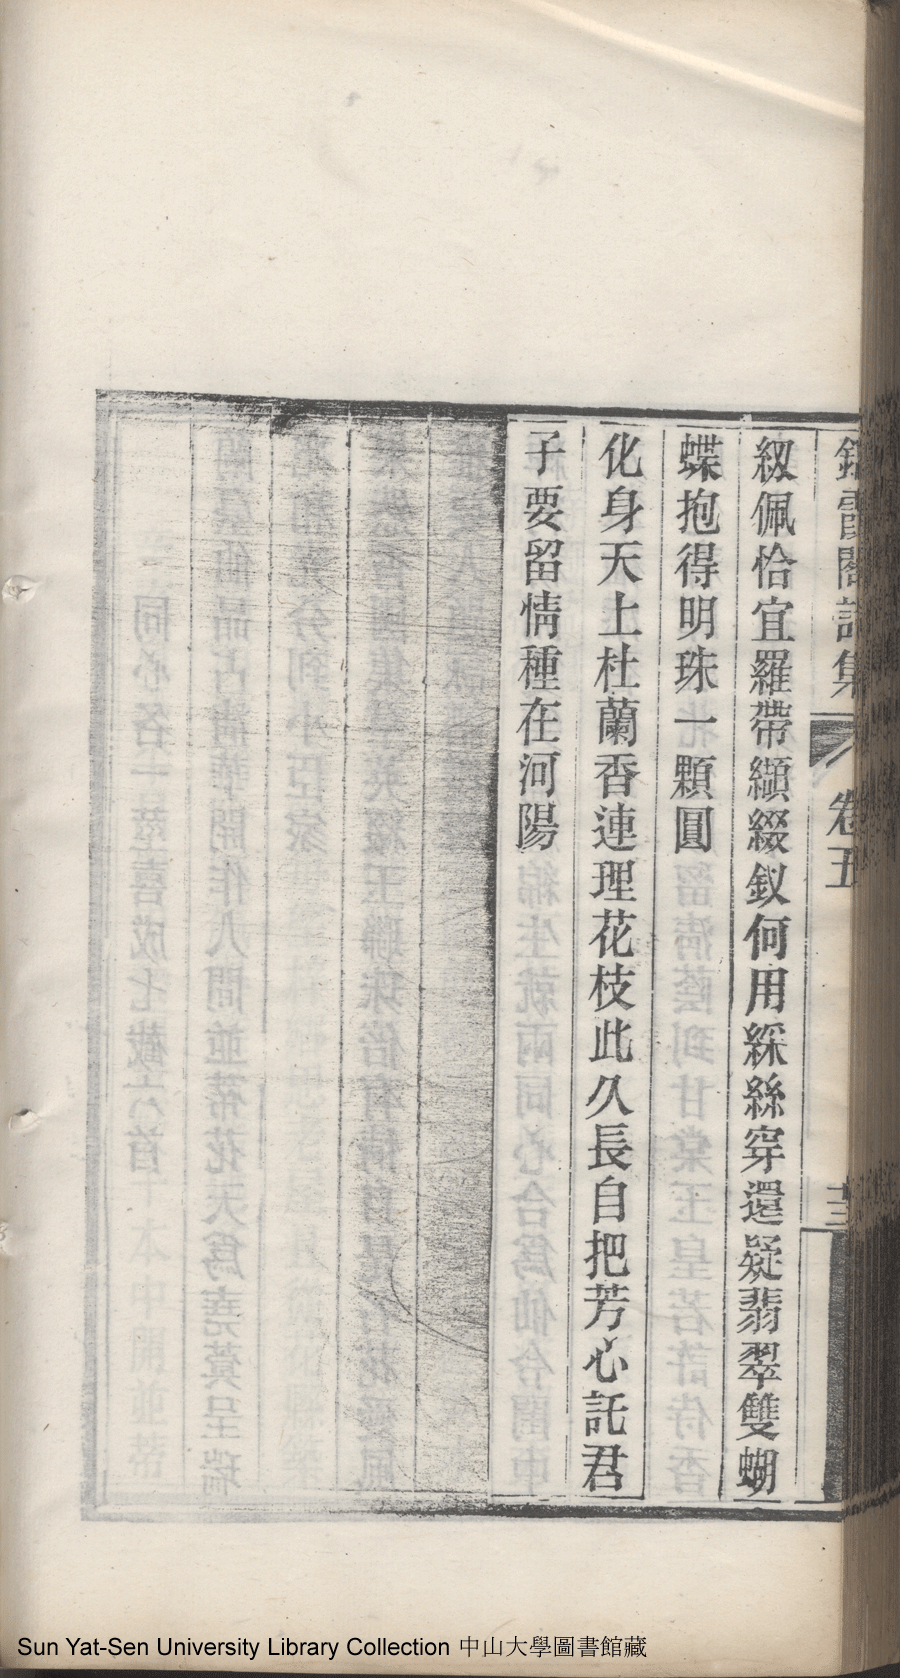 霞閣詩集
卷五
十三
紉佩恰宜羅帶纈綴釵何用綵絲穿還疑翡翠雙蝴
蝶抱得明珠一顆圓
化身天上杜蘭香連理花枝此久長自把芳心託君
子要留情種在河陽
Sun Yat-Sen University Library Collection 中山大學圖書館藏